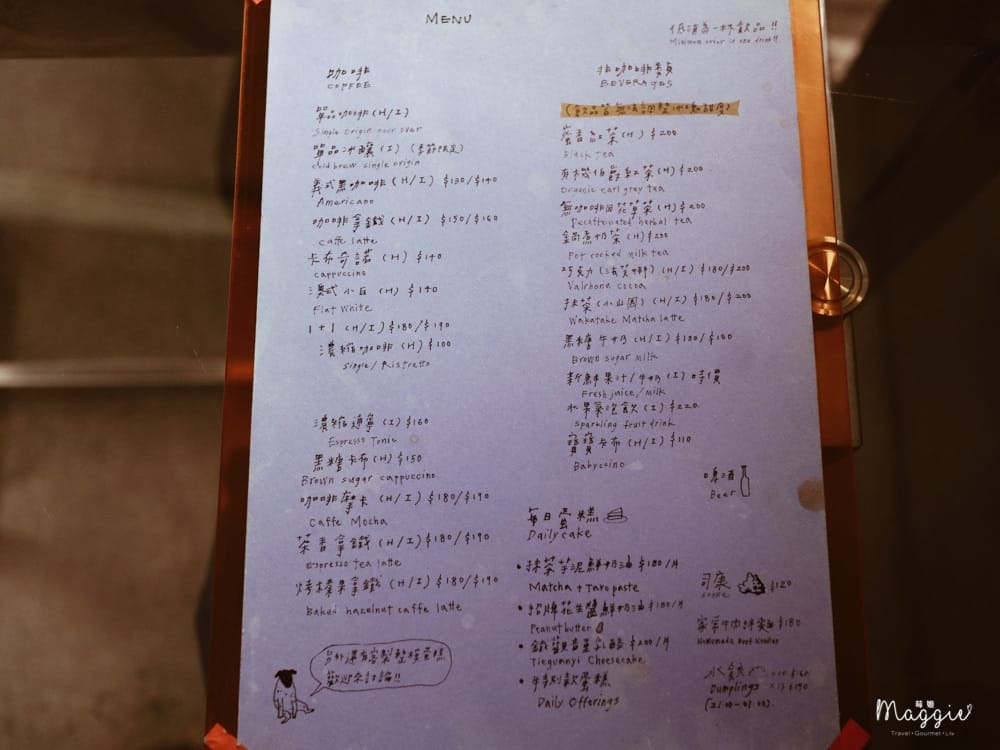 MENU
低消為一杯飲品!!
Minimum order is one drink!!
咖啡
COFFEE
單品咖啡(H/I)
Single origin pour over
單品冰釀(I)(季節限定)
cold brew single origin
義式黑咖啡(H/I) $130/$140
Americano
咖啡拿鐵(H/I) $150/$160
Caffe latte
卡布奇諾(H) $140
cappuccino
澳式小白(H) $140
Flat White
1+1(H/I) $180/$190
濃縮咖啡(H) $100
Single/Ristretto
濃縮通寧(I) $160
Espresso Tonic
黑糖卡布(H) $150
Brown sugar cappuccino
咖啡摩卡(H/I) $180/$190
Caffe Mocha
茶香拿鐵(H/I) $180/$190
Espresso tea latte
烤榛果拿鐵(H/I) $180/$190
Baked hazelnut caffe latte
另外還有客製整模蛋糕
歡迎來討論!!
非咖啡類
BEVERAGES
(飲品皆無法調整冰塊甜度)
蜜香紅茶(H) $200
Black tea
有機伯爵紅茶(H) $200
Organic earl grey tea
無咖啡因花草茶(H) $200
Decaffeinated herbal tea
鍋煮奶茶(H) $230
Pot cooked milk tea
巧克力(法芙娜)(H/I) $180/$200
Valrhona cocoa
抹茶(小山園)(H/I) $180/$200
Wakatake Matcha latte
黑糖牛奶(H/I) $150/$160
Brown sugar milk
新鮮果汁/牛奶(I)時價
Fresh juice/milk
水果氣泡飲(I) $220
Sparkling fruit drink
寶寶卡布(H/I) $110
Babyccino
啤酒
Bear
每日蛋糕
Daily cake
•抹茶芋泥鮮奶油 $180/片
Matcha + Taro paste
•招牌花生醬鮮奶油 $180/片
Peanut butter
•鐵觀音生乳酪 $200/片
Tieguanyi Cheesecake
•特別款蛋糕
Daily Offerings
司康 $120
scone
家常牛肉拌麵 $180
Homemade Beef Noodles
水餃
Dumplings
萌姬
Maggie
Travel•Gourmet•Life